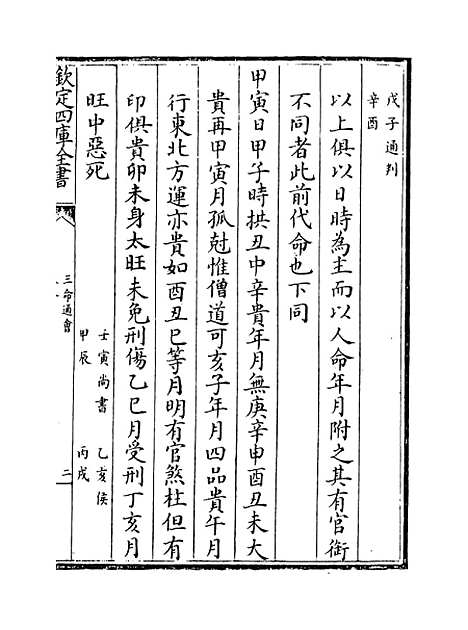 戊子通判
辛酉
以上俱以日時為主而以人命年月附之其有官銜
不同者此前代命也下同
甲寅日甲子時拱丑中辛貴年月無庚辛申酉丑未大
貴再甲寅月孤尅惟僧道可亥子年月四品貴午月
行東北方運亦貴如酉丑巳等月明有官煞柱但有
印俱貴卯未身太旺未免刑傷乙巳月受刑丁亥月
旺中惡死
壬寅尚書 乙亥侯
甲辰 丙戌
欽定四庫全書
三命通會
二